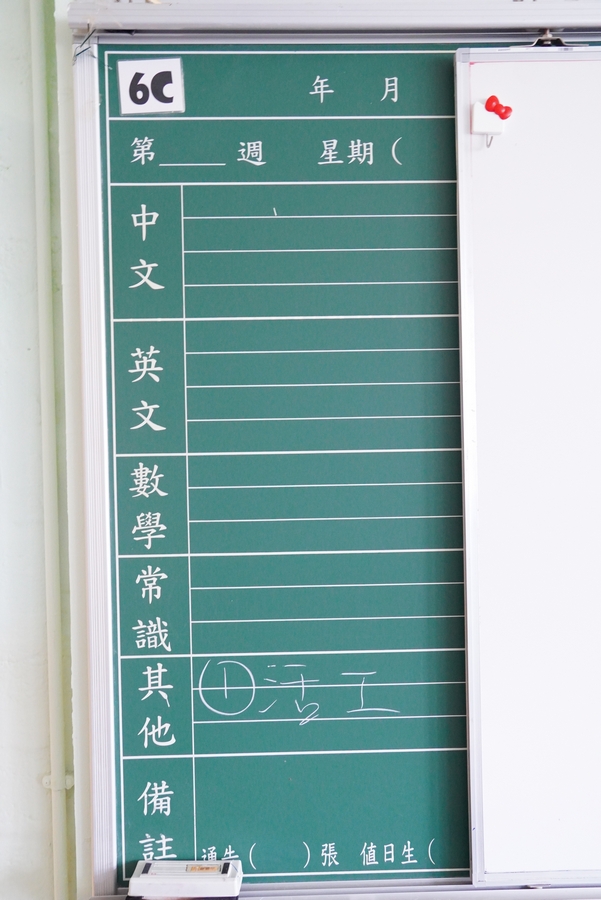 6C 年 月
第____週 星期(
中文
英文
數學
常識
其他 ①活工
備註 通告( )張 值日生(